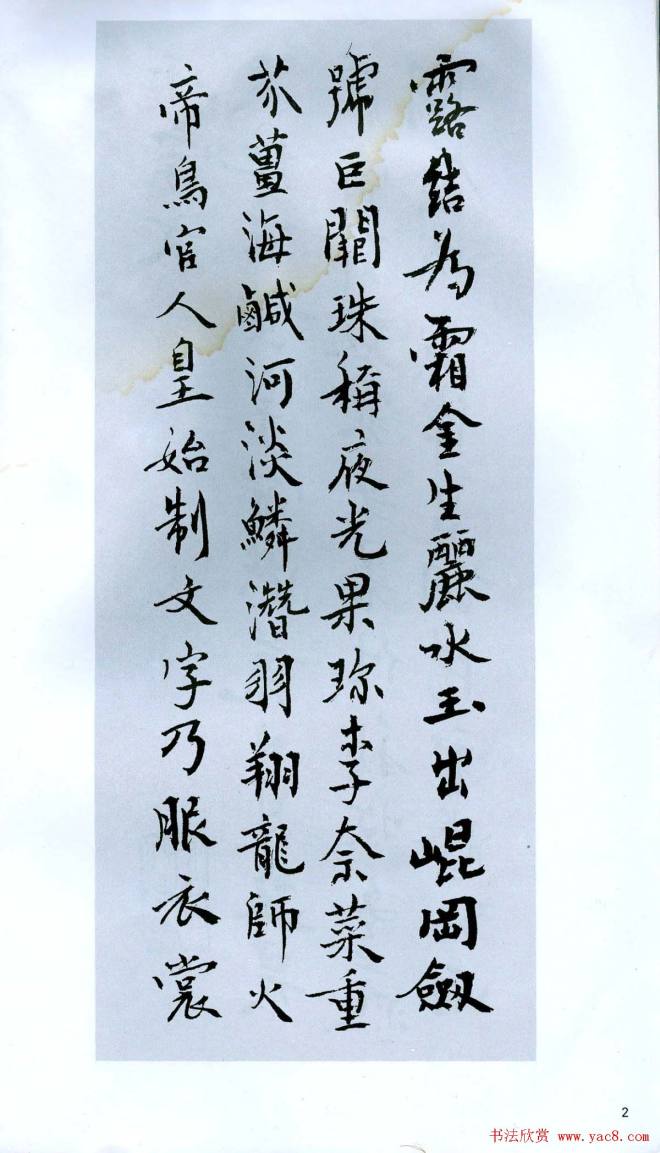 露結為霜金生麗水玉出崐岡劔
號巨闕珠稱夜光果珎李柰菜重
芥薑海鹹河淡鱗潛羽翔龍師火
帝鳥官人皇始制文字乃服衣裳
2
书法欣赏 www.yac8.com